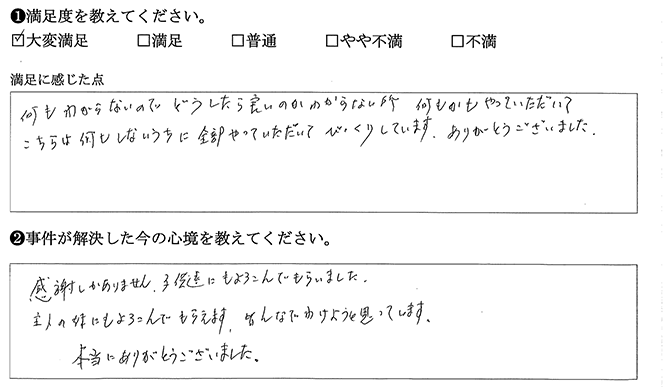 ❶満足度を教えてください。
☑大変満足 □満足 □普通 □やや不満 □不満
満足に感じた点
何もわからないのでどうしたら良いのかわからない所 何もかもやっていただいて
こちらは何もしないうちに全部やっていただいてびっくりしています。ありがとうございました。
❷事件が解決した今の心境を教えてください。
感謝しかありません。子供達にもよろこんでもらいました。
主人の妹にもよろこんでもらえます。皆んなでわけようと思ってします。
本当にありがとうございました。